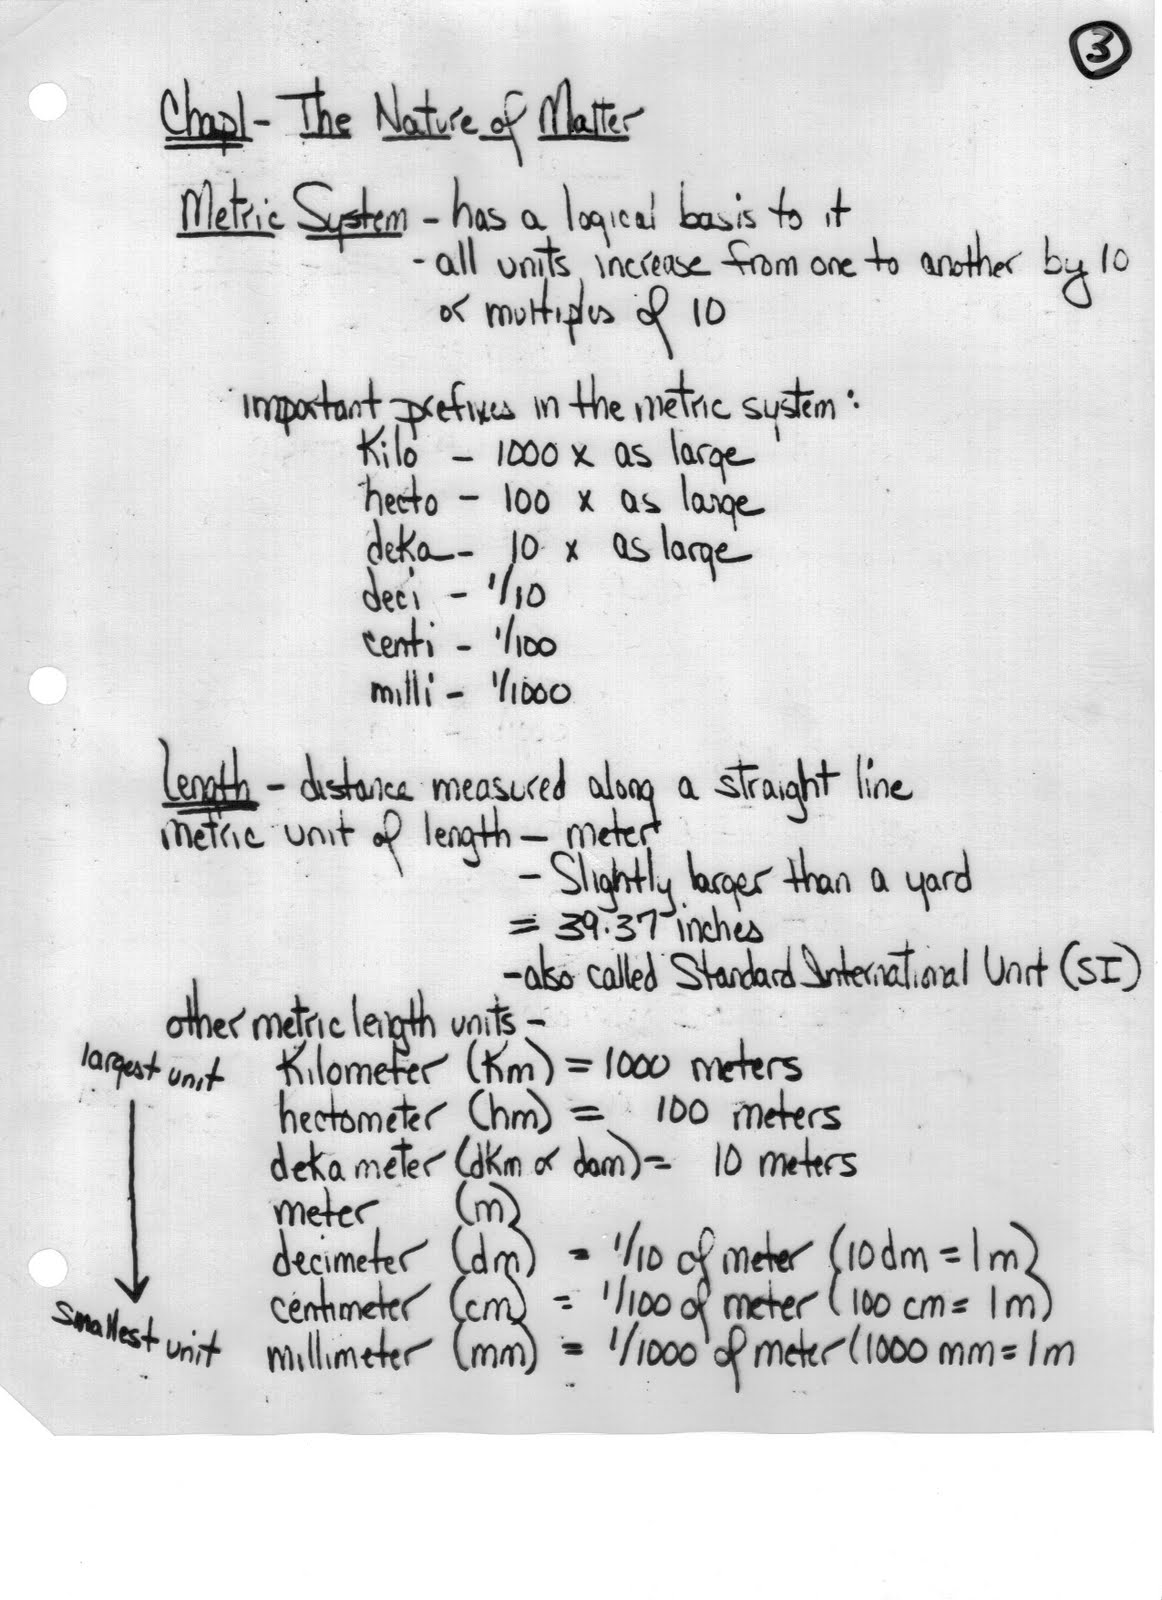 3
Chap1 - The Nature of Matter
Metric System - has a logical basis to it
- all units increase from one to another by 10
or multiples of 10
important prefixes in the metric system:
Kilo - 1000 x as large
hecto - 100 x as large
deka - 10 x as large
deci - 1/10
centi - 1/100
milli - 1/1000
Length - distance measured along a straight line
metric unit of length - meter
- Slightly larger than a yard
= 39.37 inches
- also called Standard International Unit (SI)
other metric length units -
largest unit Kilometer (Km) = 1000 meters
hectometer (hm) = 100 meters
deka meter (dKm or dam) = 10 meters
meter (m)
decimeter (dm) = 1/10 of meter (10 dm = 1m)
centimeter (cm) = 1/100 of meter (100 cm = 1m)
smallest unit millimeter (mm) = 1/1000 of meter (1000 mm = 1m